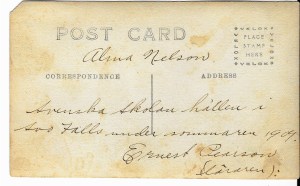 POST CARD
PLACE
STAMP
HERE
Alma Nelson
CORRESPONDENCE
ADDRESS
Svenska Skolan hållen i
Falls under sommaren 1909.
Ernest Pearson
(Läraren).